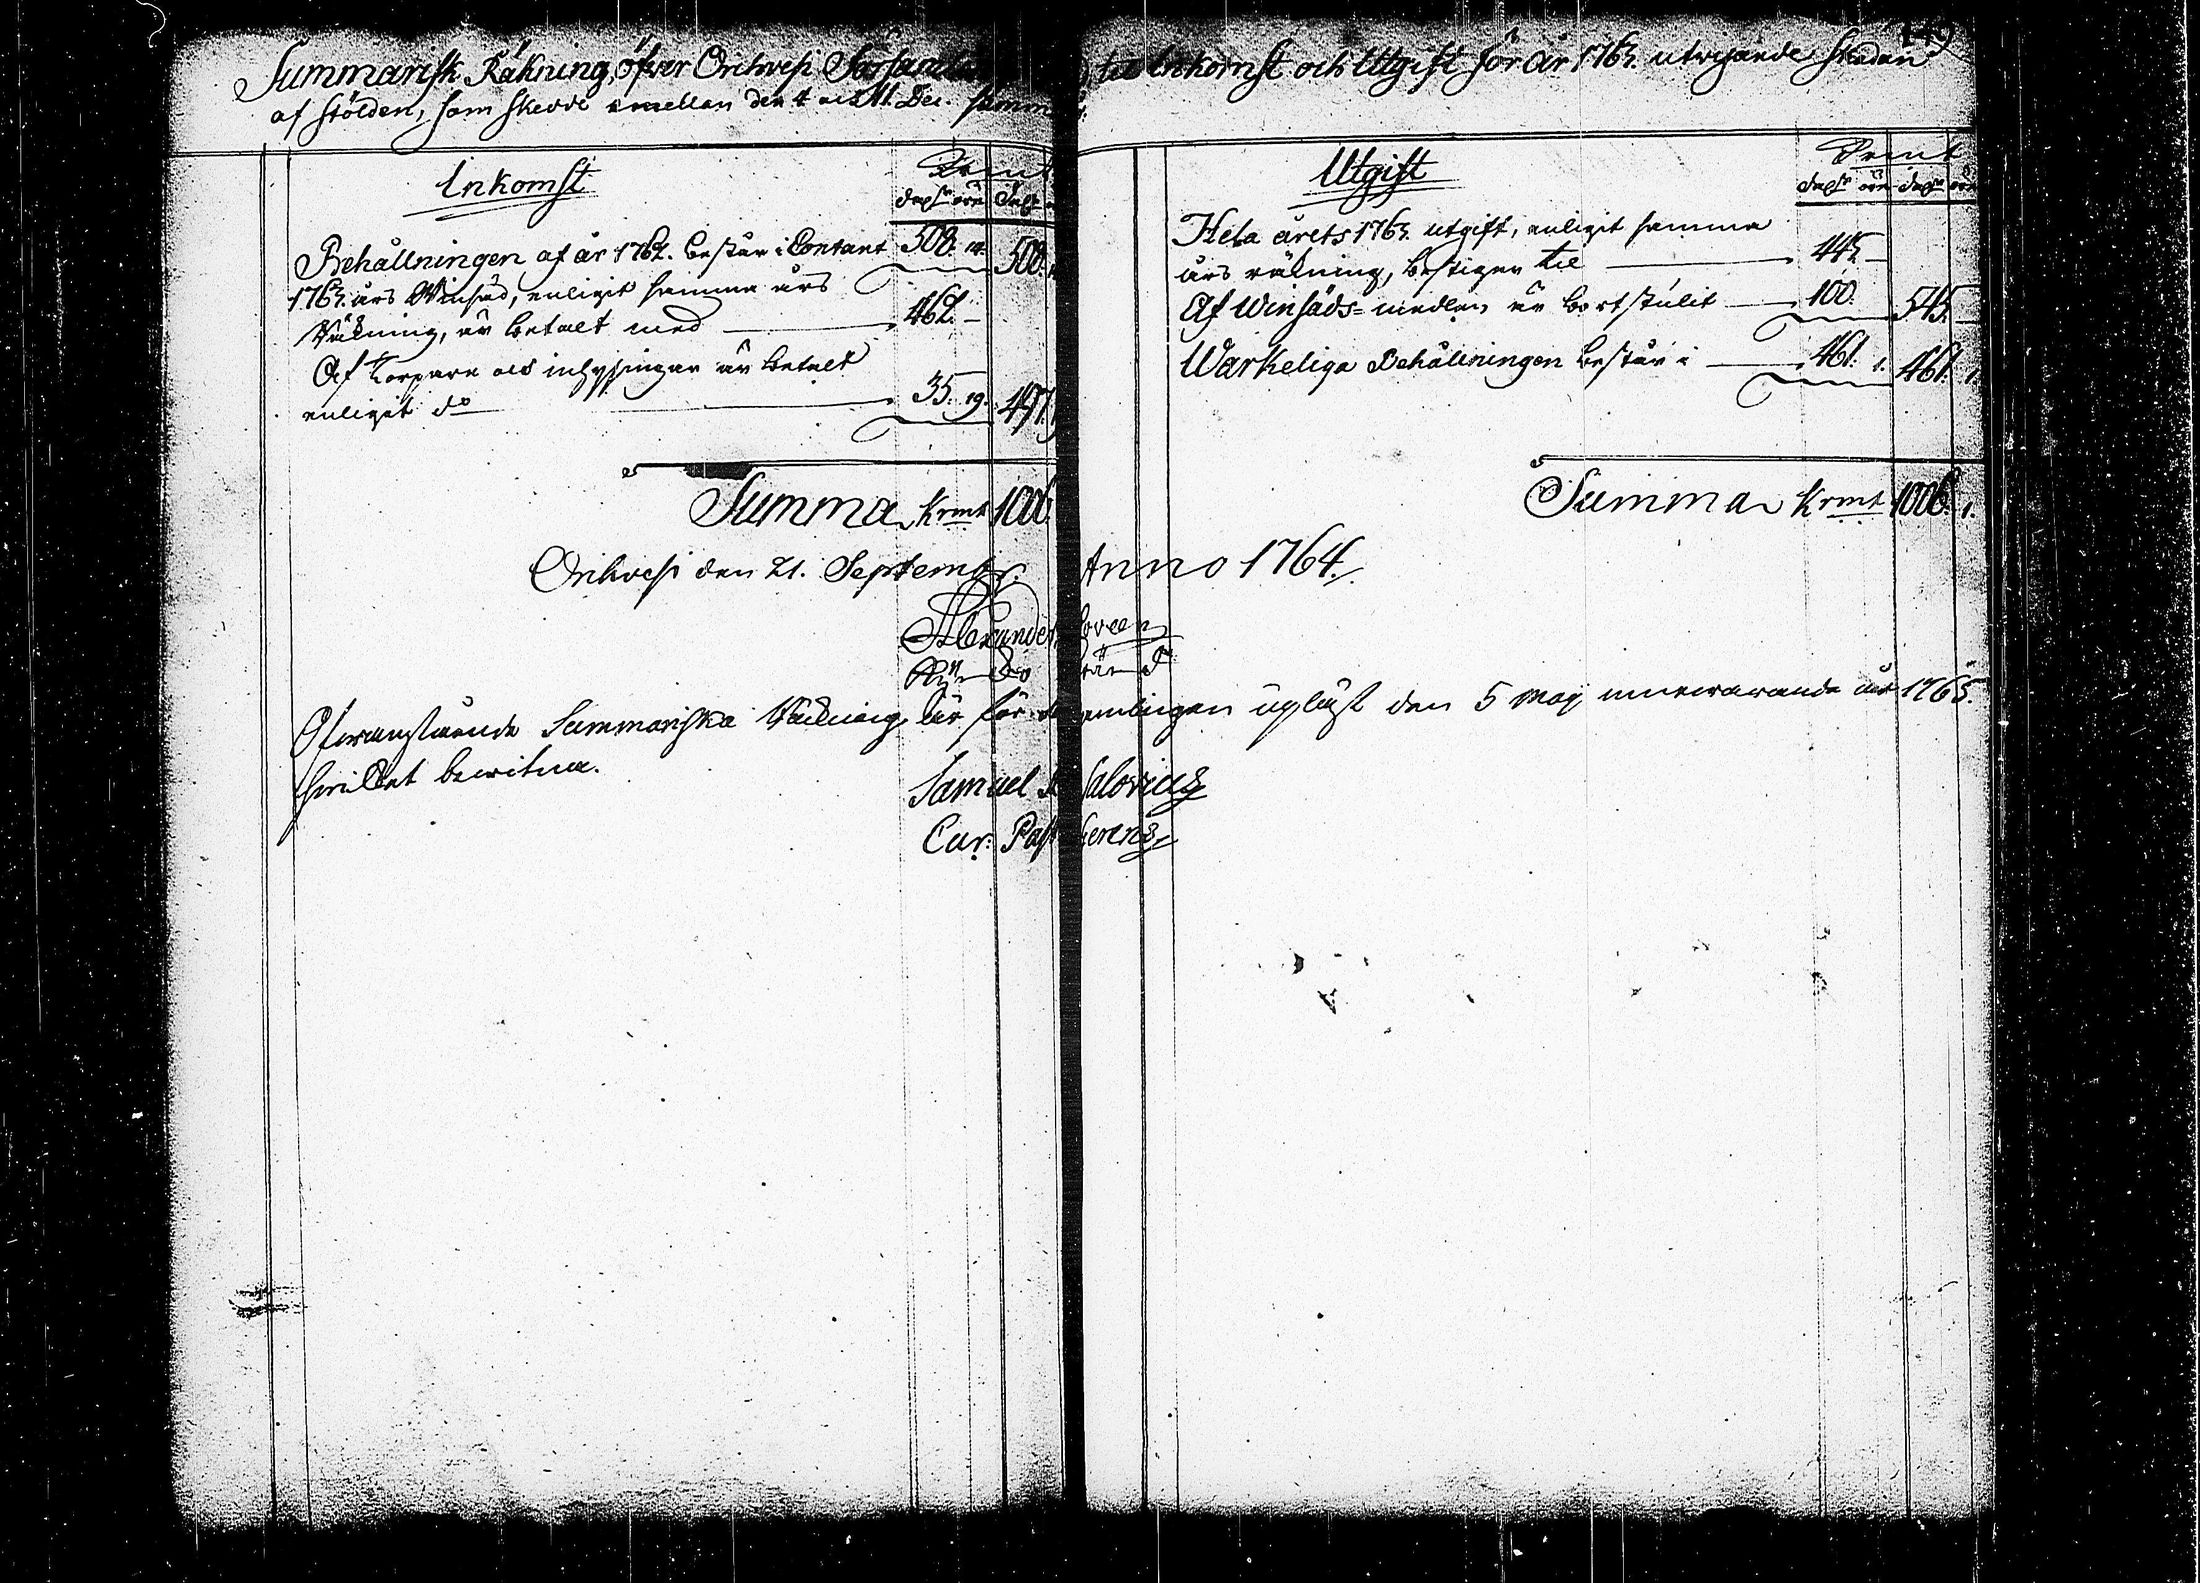 149
Summarisk Räkning, öfver Orihvesi Församlin til Inkomst och Utgift för år 1763. utvisande skadan
af stölden, som skedde emellan den 4 och 11. Dec. samm
Inkomst
Krmt
dal:r öre dal:r
Behållningen af år 1762. består i Contant 508. 14. 508.
1763. års Winsäd, enligit samma års
Räkning, är betalt med 462. –
Af Torpare och inhysingar är betalt
enligit do 35. 19. 497.
Summa Krmt 1006.
Utgift
Krmt
dal:r öre dal:r öre
Hela årets 1763. utgift, enligit samma
års räkning, bestiger til 445. –
Af Winsäds-medlen är bortstulit 100. 545. –
Warkeliga Behållningen består i 461. 1. 461. 1.
Summa Krmt 1006. 1.
Orihvesi den 21. Septembr. Anno 1764.
Alexander
Ofvanstående Summariska Räkning är för amlingen upläst den 5 Maij innevarande år 1765.
hvilket bewitnar.
Samuel Salovius
Cur. Past. erens